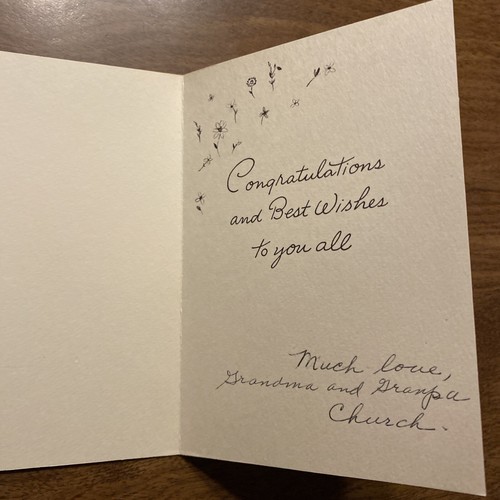 Congratulations
and Best Wishes
to you all
Much love,
Grandma and Granpa
Church.